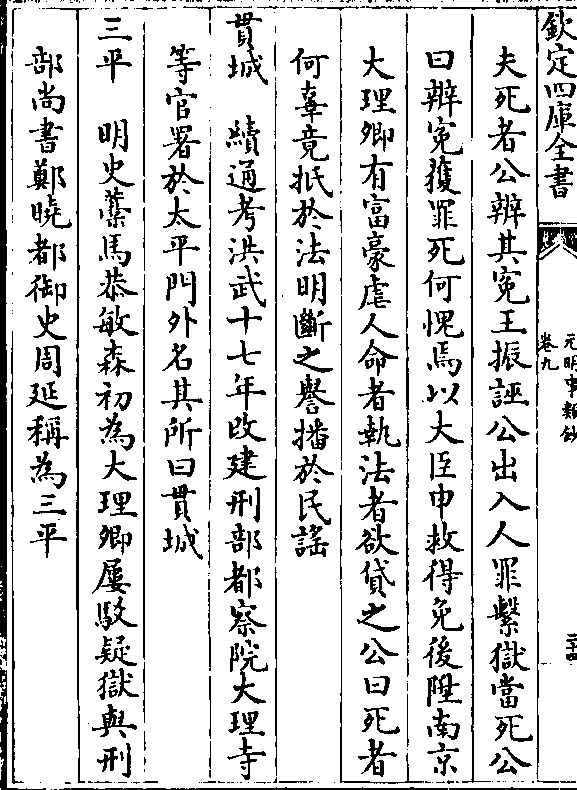 欽定四庫全書
元明事類鈔
卷九
二十四
夫死者公辨其寃王振誣公出入人罪繫獄當死公
曰辨寃獲罪死何愧焉以大臣申救得免後陞南京
大理卿有富豪虐人命者執法者欲貸之公曰死者
何辜竟抵於法明斷之譽播於民謡
貫城　續通考洪武十七年改建刑部都察院大理寺
等官署於太平門外名其所曰貫城
三平　明史藁馬恭敏森初為大理卿屢駁疑獄與刑
部尚書鄭曉都御史周延稱為三平